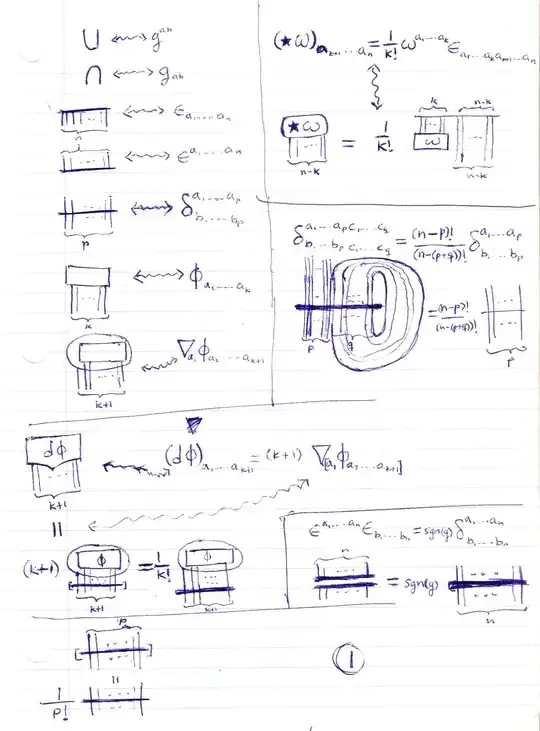 ∪ ↔ g^{ab}
∩ ↔ g_{ab}
n ↔ ε_{a₁...aₙ}
↔ ε^{a₁...aₙ}
p ↔ δ^{a₁...a_p}_{b₁...b_p}
k ↔ ϕ_{a₁...a_k}
k+1 ↔ ∇_{a₁}ϕ_{a₂...a_{k+1}}
(★ω)_{a_{k+1}...aₙ} = 1/k! ω^{a₁...a_k} ε_{a₁...a_k a_{k+1}...aₙ}
★ω n-k = 1/k! k ω n-k n-k
δ^{a₁...a_p c₁...c_q}_{b₁...b_p c₁...c_q} = (n-p)!/(n-(p+q))! δ^{a₁...a_p}_{b₁...b_p}
p q = (n-p)!/(n-(p+q))! p
dϕ k+1 ↔ (dϕ)_{a₁...a_{k+1}} = (k+1) ∇_{[a₁}ϕ_{a₂...a_{k+1}]}
=
(k+1) ϕ k+1 = 1/k! ϕ k+1
ε^{a₁...aₙ} ε_{b₁...bₙ} = sgn(g) δ^{a₁...aₙ}_{b₁...bₙ}
n = sgn(g) n
[ p ]
=
1/p!
1